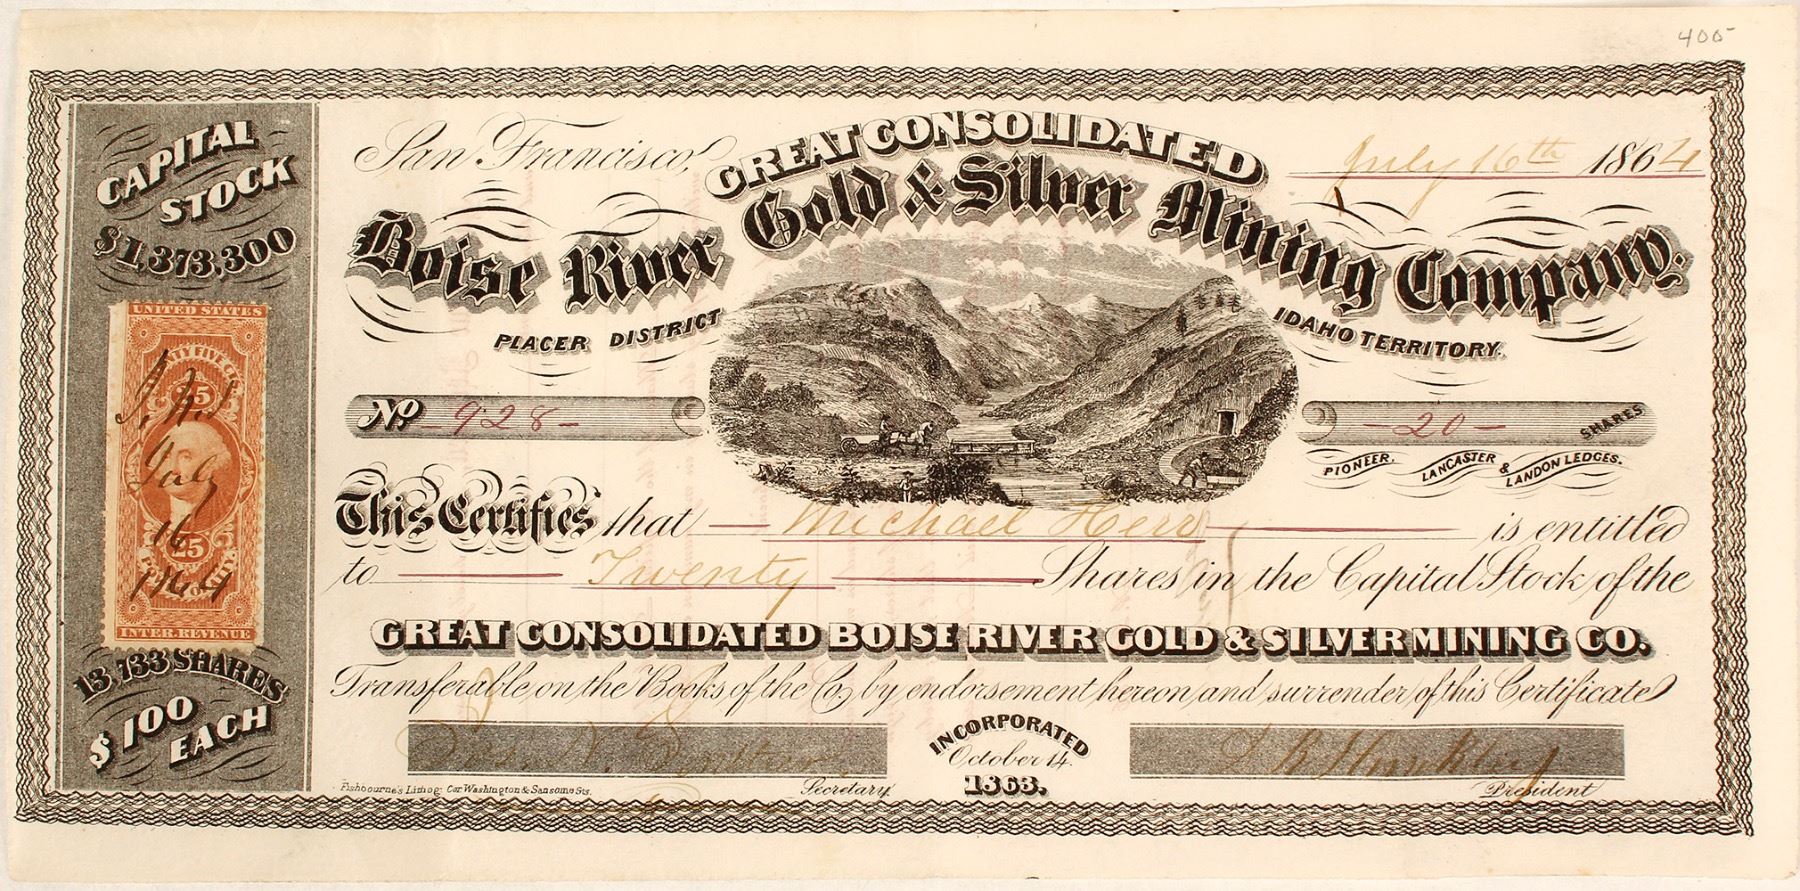 400
CAPITAL
STOCK
$1,373,300
UNITED STATES
25
July
16
25
1864
INTER. REVENUE
13,733 SHARES
$100
EACH
San Francisco,
July 16th 1864
GREAT CONSOLIDATED
Boise River Gold & Silver Mining Company.
PLACER DISTRICT
IDAHO TERRITORY.
No. -928-
-20- SHARES
PIONEER, LANCASTER & LANDON LEDGES.
This Certifies that Michael Herr is entitled
to Twenty Shares in the Capital Stock of the
GREAT CONSOLIDATED BOISE RIVER GOLD & SILVER MINING CO.
Transferable on the Books of the Co, by endorsement hereon and surrender of this Certificate
INCORPORATED
October 14.
1863.
Secretary
President
Fishbourne's Lithog: Cor Washington & Sansome Sts.